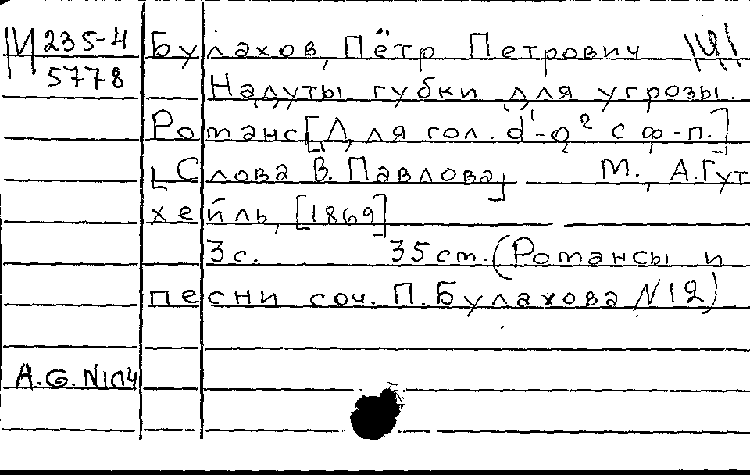 М 235-4
5778
Булахов, Пётр Петрович
Надуты губки для угрозы.
Романс [Для гол. d¹-g² с ф-п.]
[Слова В. Павлова] М., А. Гут
хейль, [1869]
3 с. 35 ст. (Романсы и
песни соч. П. Булахова №12)